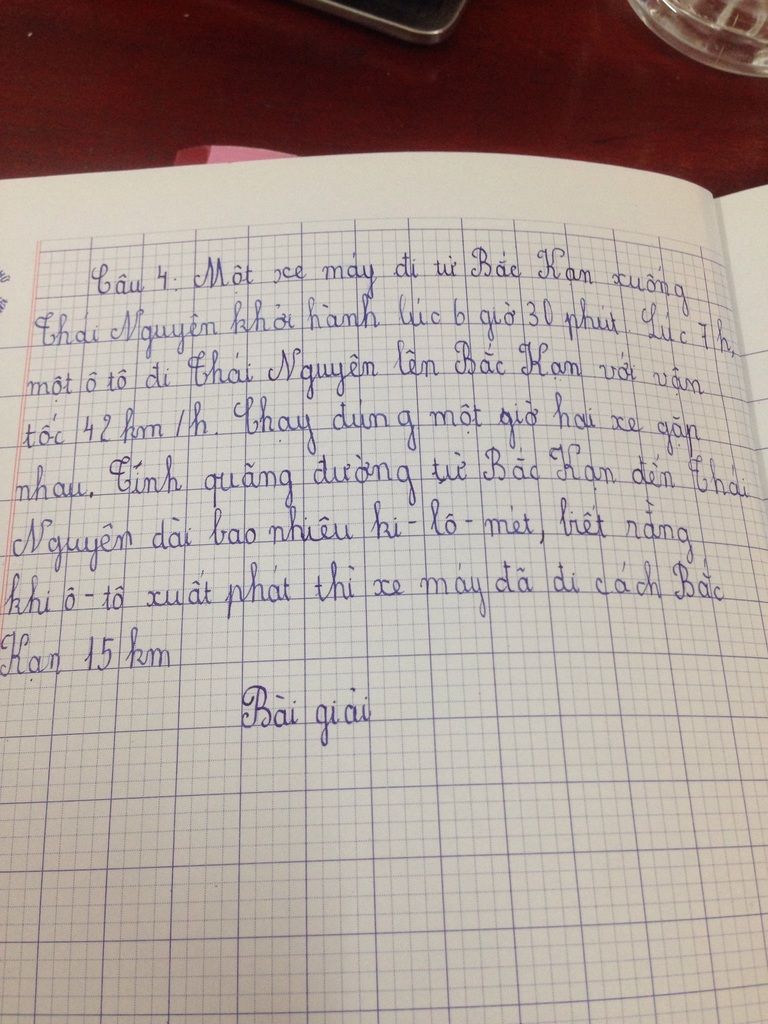 Câu 4: Một xe máy đi từ Bắc Kạn xuống
Thái Nguyên khởi hành lúc 6 giờ 30 phút. Lúc 7h,
một ô tô đi Thái Nguyên lên Bắc Kạn với vận
tốc 42 km/h. Chạy đúng một giờ hai xe gặp
nhau. Tính quãng đường từ Bắc Kạn đến Thái
Nguyên dài bao nhiêu ki-lô-mét, biết rằng
khi ô-tô xuất phát thì xe máy đã đi cách Bắc
Kạn 15 km
Bài giải